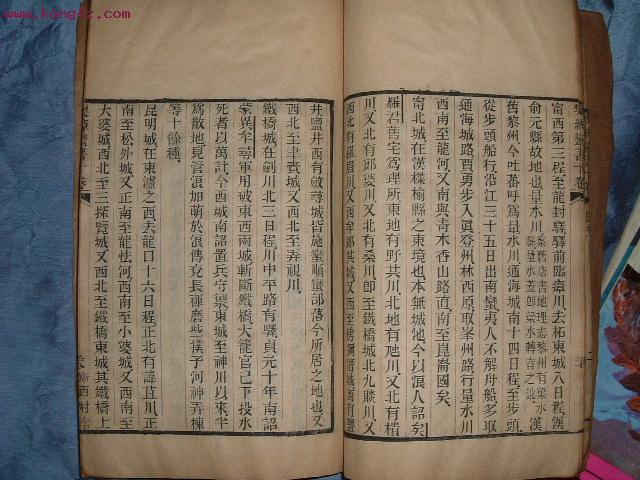 www.kongfz.com
甯西第三程至龍封驛驛前臨瘴川去柘東城八日程漢
俞元縣故地也量水川案舊唐書地理志黎州有梁水漢
舊黎州今吐蕃呼為量水川通海城南十四日程至步頭
從步頭船行沿江三十五日出南蠻夷人不解舟船多取
通海城路賈勇步入真登州林西原取峯州路行量水川
西南至龍河又南與青木香山路直南至崑崙國矣
甯北城在漢楪榆縣之東境也本無城池今以浪人詔矣
羅君舊宅為理所東地有野共川北地有虺川又北有樻
川又北有郎婆川又北有桑川卽至鐵橋城北九賧川又
西北有羅眉川又西牟郎共城又西至傍彌潛城西有鹽
井鹽井西有斂尋城皆施蠻順蠻部落今所居之地也又
西北至聿賷城又西北至弄視川
鐵橋城在劍川北三日程川中平路有驛貞元十年南詔
蒙異牟尋軍用破東西兩城斬斷鐵橋大籠官已下投水
死者以萬計今西城南詔置兵守禦東城至神川以來半
為散地見管浪加萌於浪傳兗長褌磨些撲子河神弄棟
等十餘種
昆明城在東瀘之西去龍口十六日程正北有諱苴川正
南至松外城又正南至龍怯河西南至小婆城又西南至
大婆城西北至三探覽城又西北至鐵橋東城其鐵橋上